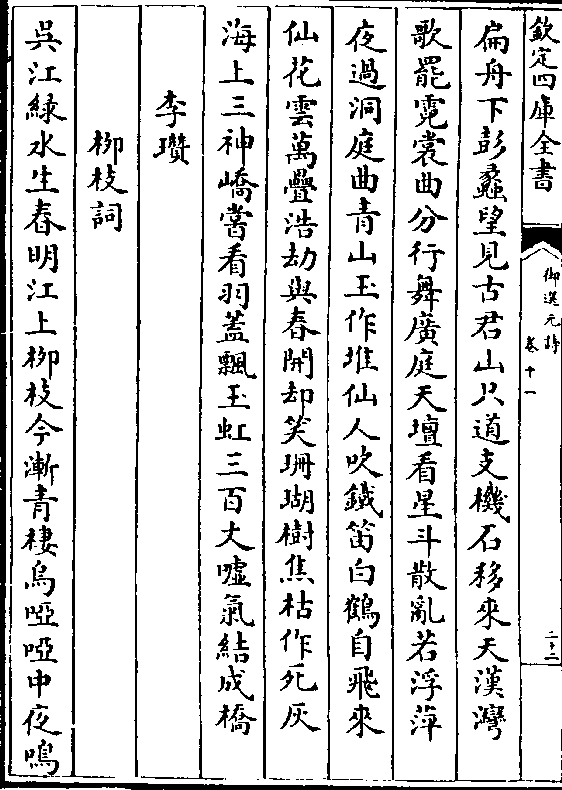 欽定四庫全書
御選元詩
卷十一
二十二
扁舟下彭蠡望見古君山只道支機石移來天漢灣
歌罷霓裳曲分行舞廣庭天壇看星斗散亂若浮萍
夜過洞庭曲青山玉作堆仙人吹鐵笛白鶴自飛來
仙花雲萬疊浩劫與春開却笑珊瑚樹焦枯作死灰
海上三神嶠嘗看羽蓋飄玉虹三百丈噓氣結成橋
李瓚
柳枝詞
吳江緑水生春明江上柳枝今漸青棲烏啞啞中夜鳴